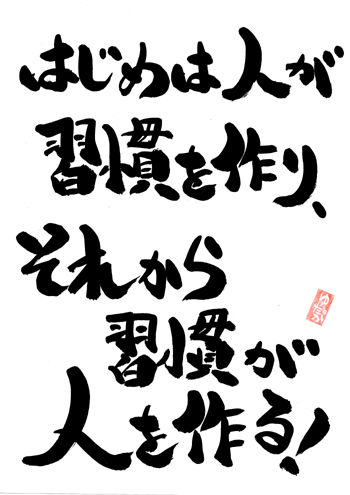 はじめは人が
習慣を作り、
それから
習慣が
人を作る!